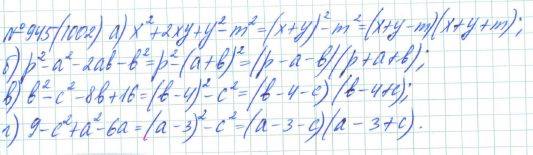 №945(1002) а) x²+2xy+y²-m²=(x+y)²-m²=(x+y-m)(x+y+m);
б) p²-a²-2ab-b²=p²-(a+b)²=(p-a-b)(p+a+b);
в) b²-c²-8b+16=(b-4)²-c²=(b-4-c)(b-4+c);
г) 9-c²+a²-6a=(a-3)²-c²=(a-3-c)(a-3+c).